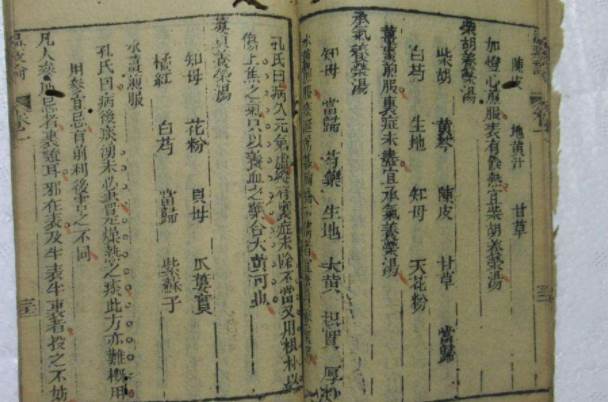 陳皮 地黃汁 甘草
加燈心煎服表有餘熱宜柴胡養榮湯
柴胡養榮湯
柴胡 黃芩 陳皮 甘草 當歸
白芍 生地 知母 天花粉
薑棗煎服裏症未盡宜承氣養榮湯
承氣養榮湯
知母 當歸 芍藥 生地 大黃 枳實 厚朴
孔氏曰病久元氣虛 裏症未除不當又用枳朴以
傷上焦之氣只以養血之藥合大黃可也
蔞貝養榮湯
知母 花粉 貝母 瓜蔞實
橘紅 白芍 當歸 紫蘇子
水薑煎服
孔氏曰病後痰湧未必盡是燥熱之痰此方亦難概用
用參宜忌有前利後害之不同
凡人參所忌者裏證耳邪在表及半表半裏者投之不妨